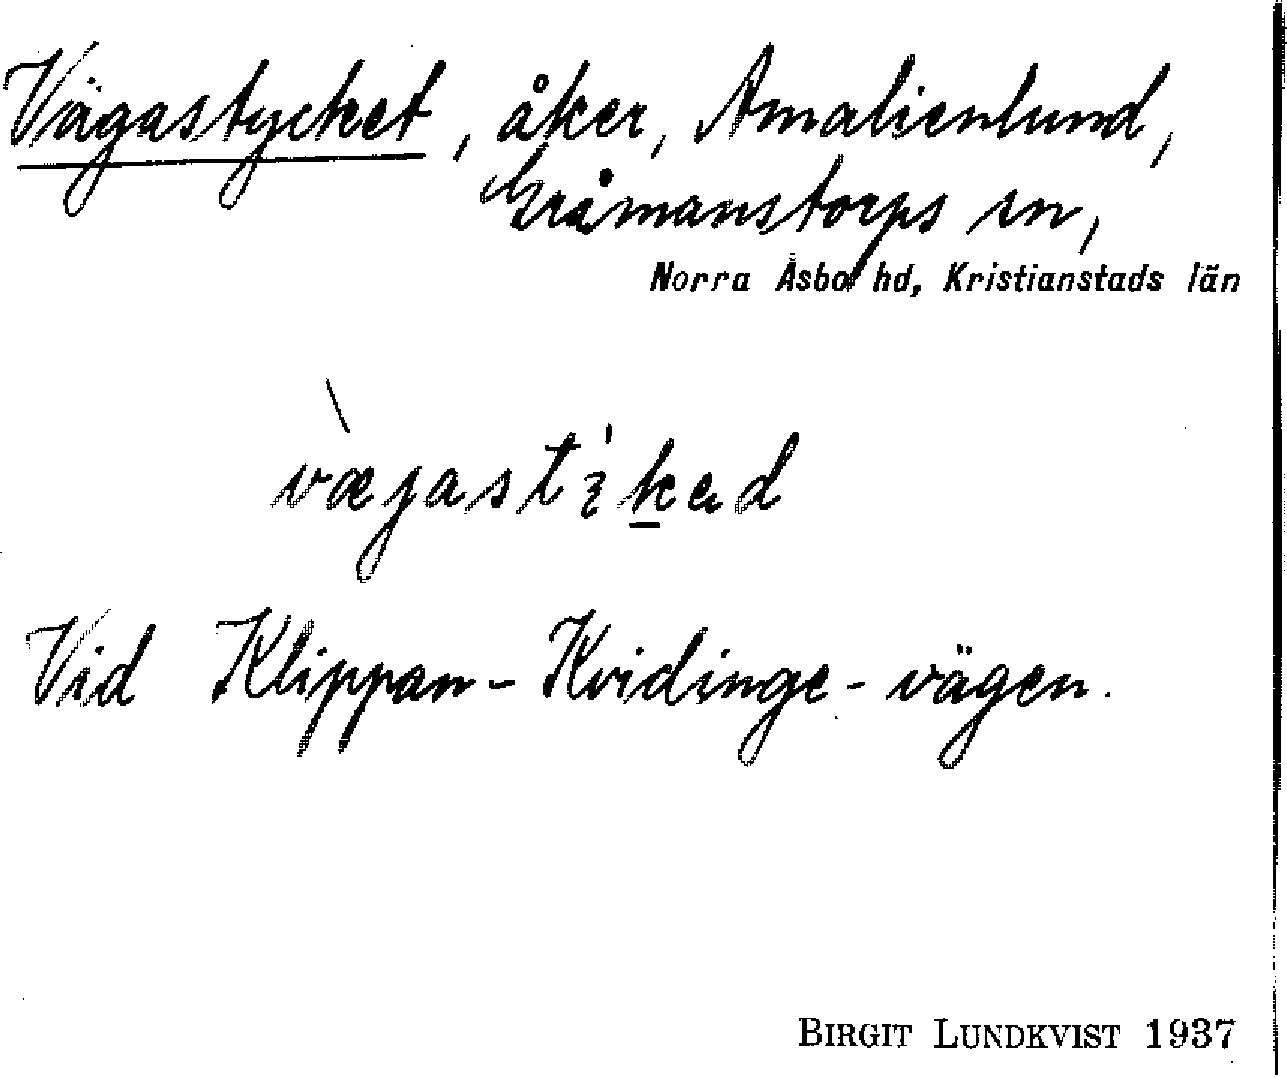 Vägastycket, åker, Amalienlund,
Gråmanstorps sn,
Norra Åsbo hd, Kristianstads län
Vid Klippan-Kvidinge-vägen.
BIRGIT LUNDKVIST 1937